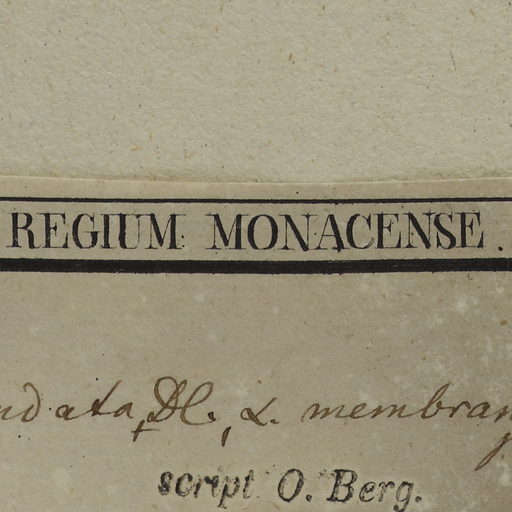 REGIUM MONACENSE.
ndata, DC., α. membran
script O. Berg.